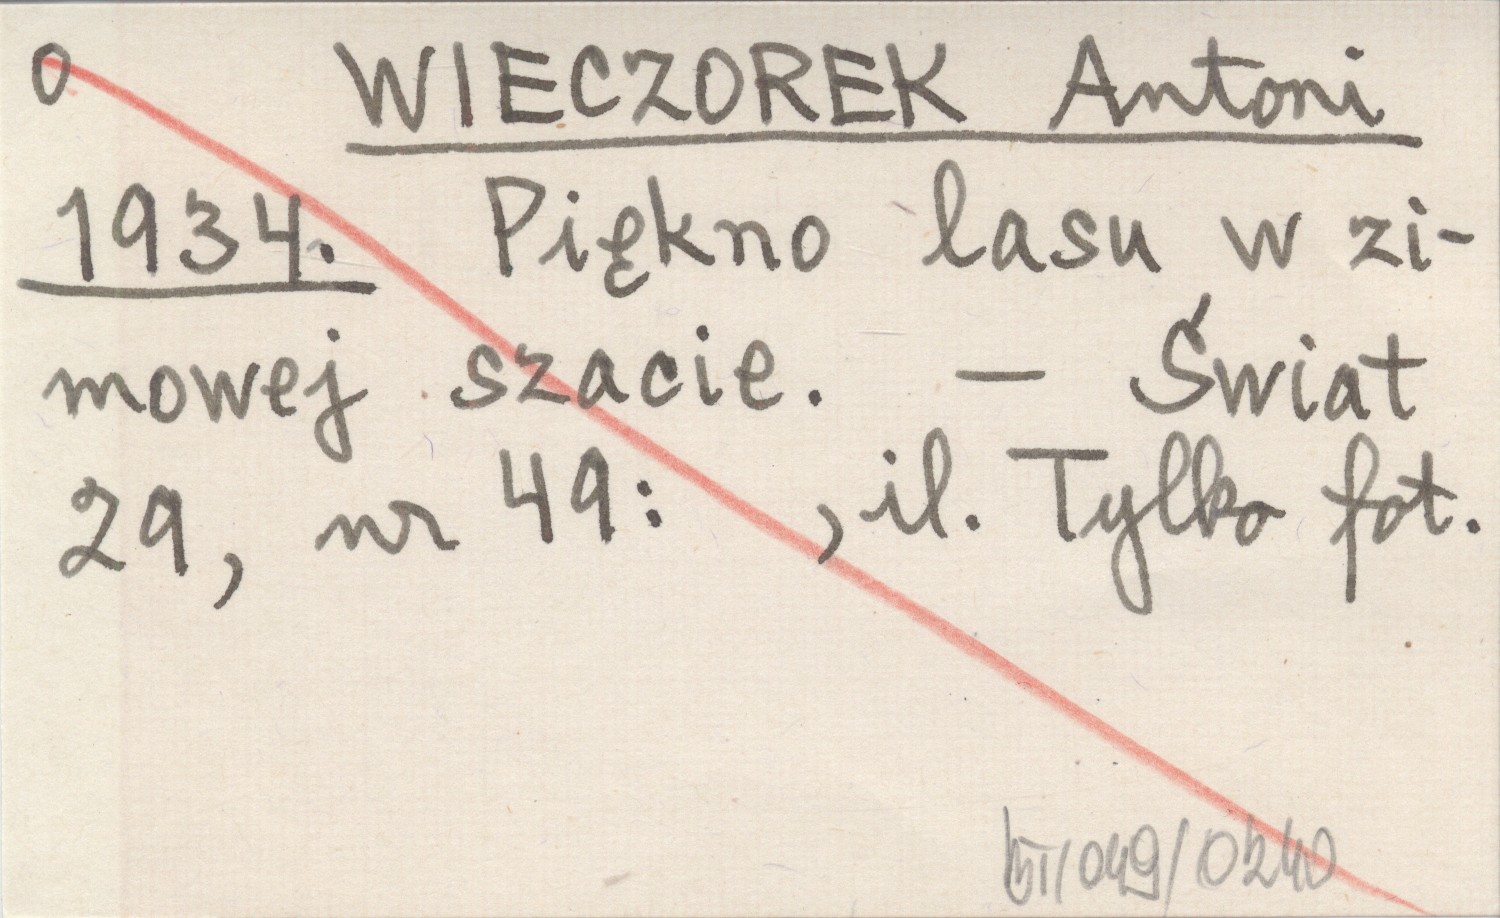 0 WIECZOREK Antoni
1934. Piękno lasu w zi-
mowej szacie. — Świat
29, nr 49: , il. Tylko fot.